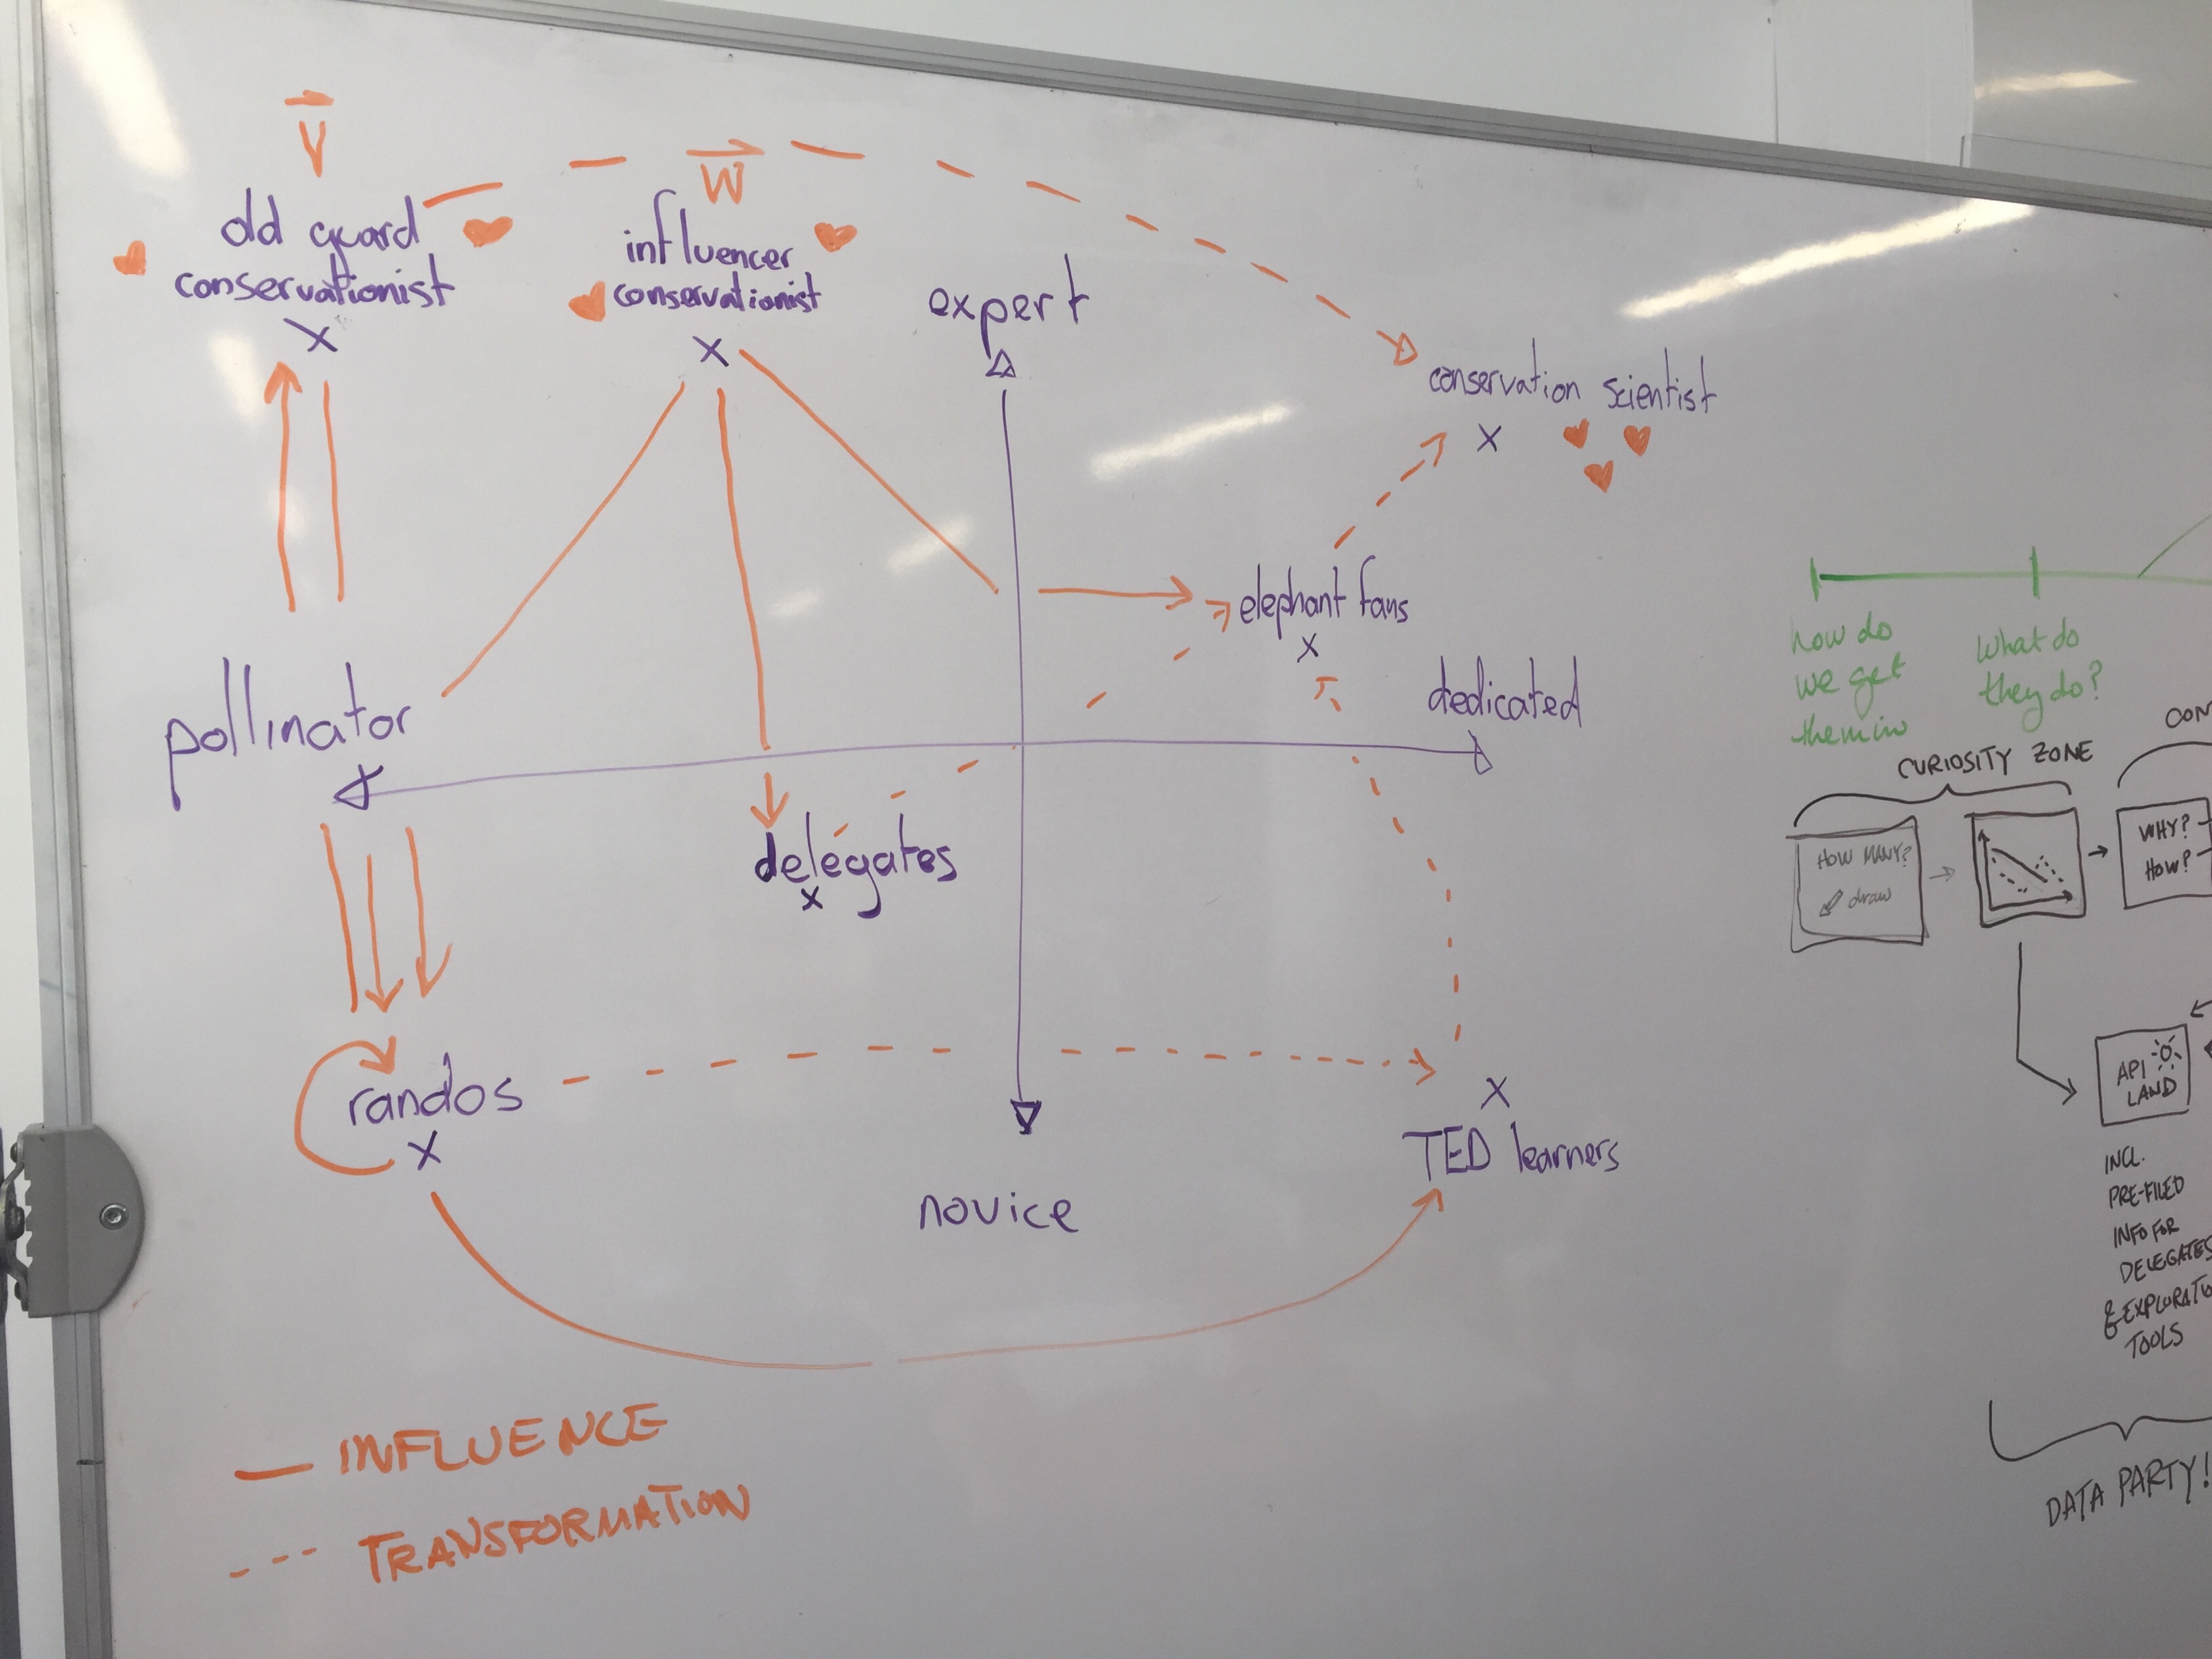 V
W
old guard
conservationist
x
influencer
conservationist
x
expert
conservation scientist
x
elephant fans
x
dedicated
pollinator
delegates
x
randos
x
x
TED learners
novice
INFLUENCE
TRANSFORMATION
how do
we get
them in
What do
they do?
CURIOSITY ZONE
CON
HOW MANY?
draw
WHY?
HOW?
API
LAND
INCL.
PRE-FILED
INFO FOR
DELEGATES
& EXPLORATO
TOOLS
DATA PARTY!